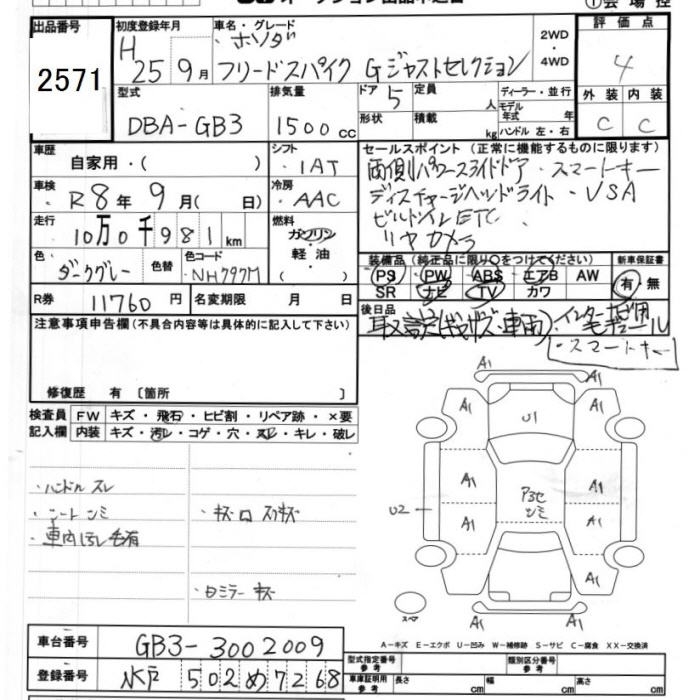 出品番号
2571
初度登録年月
H 25 9月
車名・グレード
ホンダ
フリードスパイク Gジャストセレクション
2WD
・
4WD
評価点
4
外装 内装
C C
型式
DBA-GB3
排気量
1500cc
ドア 5
定員 人
形状
積載 kg
ディーラー・並行
モデル年式 年
ハンドル 左・右
車歴
自家用・( )
シフト
・IAT
車検
・R8年 9月( 日)
冷房
・AAC
走行
10万0千981km
燃料
ガソリン
・
軽油
( )
色
ダークグレー
色替
色コード
NH797M
R券 11760円
名変期限 月 日
セールスポイント (正常に機能するものに限ります)
両側パワースライドドア・スマートキー
ディスチャージヘッドライト・VSA
ビルトインETC、
リヤカメラ
装備品 (純正品に限り○をつけてください)
PS PW ABS エアB AW
SR ナビ TV カワ
新車保証書
有・無
後日品
・スマートキー
注意事項申告欄(不具合内容等は具体的に記入して下さい)
修復歴 有 〔箇所 〕
検査員記入欄
FW キズ・飛石・ヒビ割・リペア跡・×要
内装 キズ・汚レ・コゲ・穴・スレ・キレ・破レ
・ハンドルスレ
・シートシミ
・車内ほし毛有
・ロミラーキズ
A1
A1
A1 U1 A1
A1 A1
U2 A1 A1
シミ
A1 A1
A1 A1
スペア
A-キズ E-エクボ U-凹み W-補修跡 S-サビ C-腐食 XX-交換済
車台番号
GB3-3002009
登録番号
水戸 502 め 7268
型式指定番号 参考
類別区分番号 参考
車庫証明用 参考
長さ cm
幅 cm
高さ cm